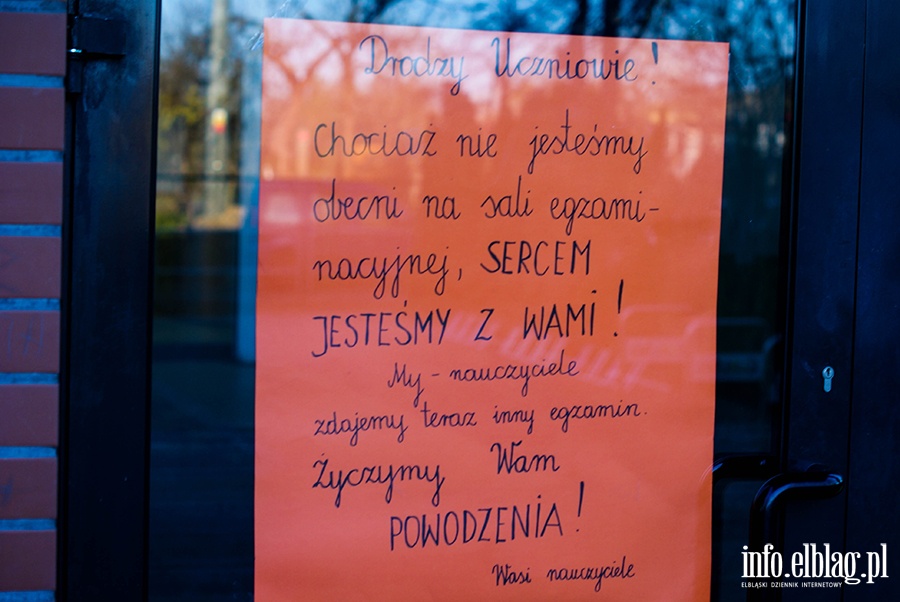 Drodzy Uczniowie!
Chociaż nie jesteśmy
obecni na sali egzami-
nacyjnej, SERCEM
JESTEŚMY Z WAMI!
My - nauczyciele
zdajemy teraz inny egzamin.
Życzymy Wam
POWODZENIA!
Wasi nauczyciele
info.elblag.pl
ELBLĄSKI DZIENNIK INTERNETOWY